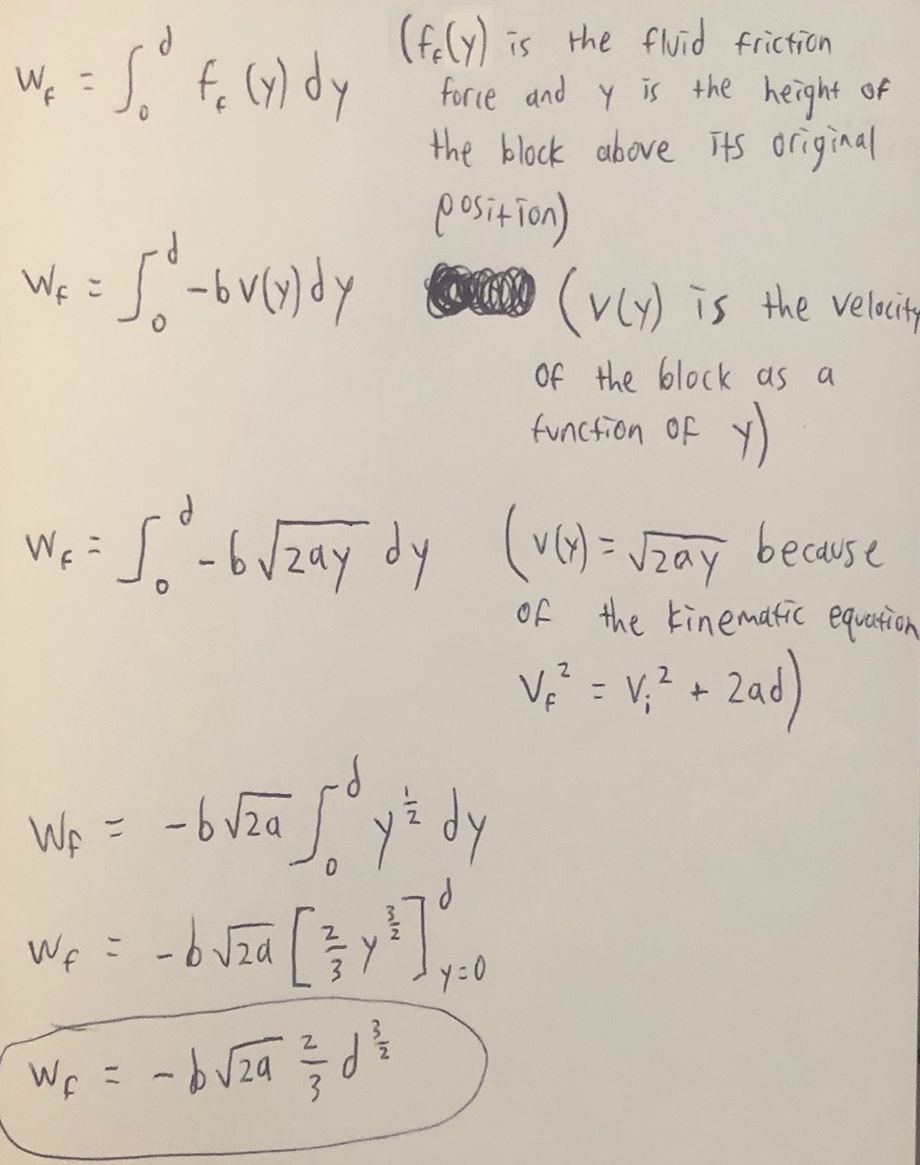 W_f = ∫₀ᵈ f_f(y) dy (f_f(y) is the fluid friction
force and y is the height of
the block above its original
position)
W_f = ∫₀ᵈ -bv(y) dy (v(y) is the velocity
of the block as a
function of y)
W_f = ∫₀ᵈ -b√(2ay) dy (v(y) = √(2ay) because
of the kinematic equation
V_f² = V_i² + 2ad)
W_f = -b√(2a) ∫₀ᵈ y^(1/2) dy
W_f = -b√(2a) [2/3 y^(3/2)]_(y=0)^d
W_f = -b√(2a) 2/3 d^(3/2)